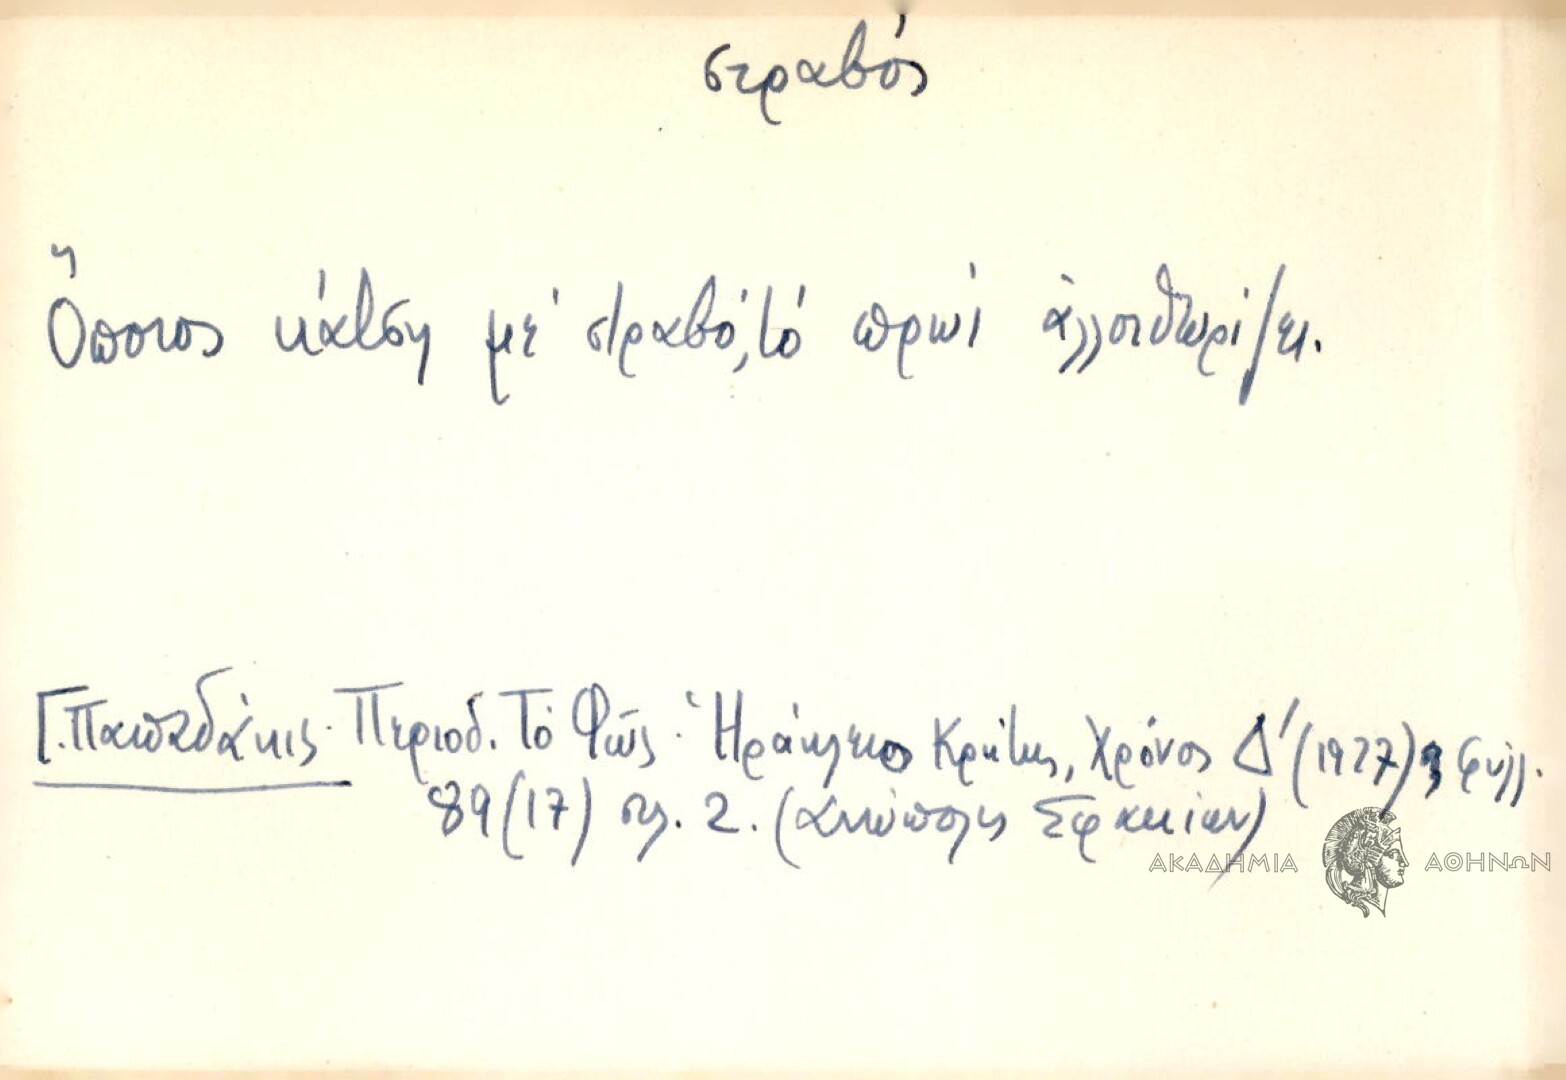 στραβός
Ὅποιος κάτση μέ στραβό, τό πρωί ἀλλοιθωρίζει.
Γ. Παπαδάκις· Περιοδ. Τό Φῶς· Ἡράκλειο Κρήτης, Χρόνος Δ' (1927) φύλλ.
89 (17) σελ. 2. (Ανώπολις Σφακίων)
ΑΚΑΔΗΜΙΑ ΑΘΗΝΩΝ